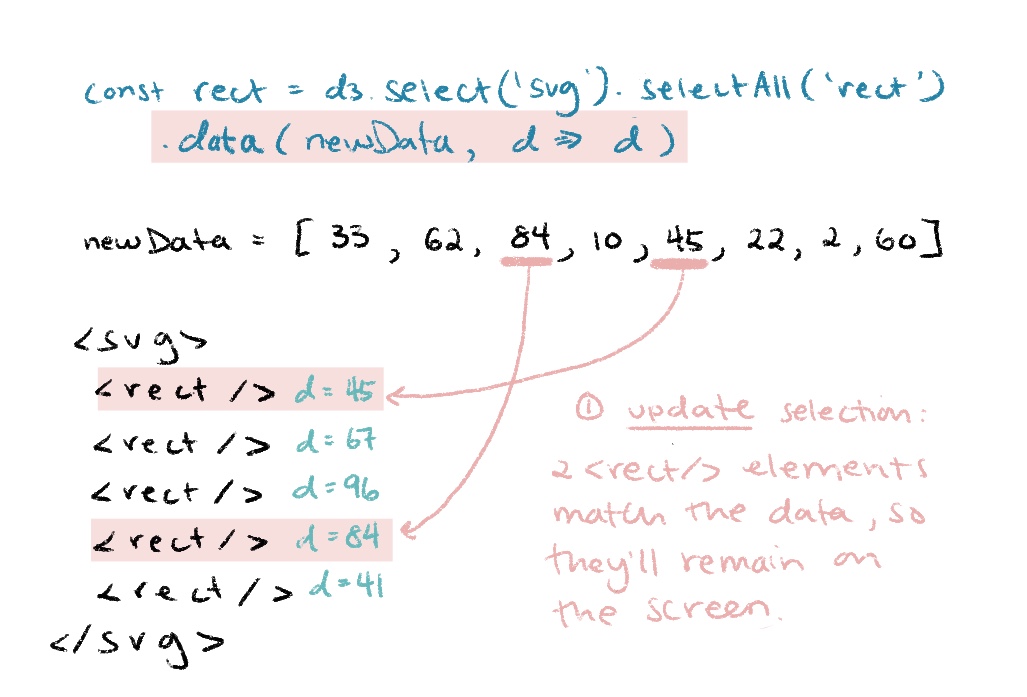 const rect = d3.select('svg').selectAll('rect')
.data(newData, d => d)
newData = [ 33, 62, 84, 10, 45, 22, 2, 60]
<svg>
<rect /> d=45
<rect /> d=67
<rect /> d=96
<rect /> d=84
<rect /> d=41
</svg>
① update selection:
2 <rect/> elements
match the data, so
they'll remain on
the screen.